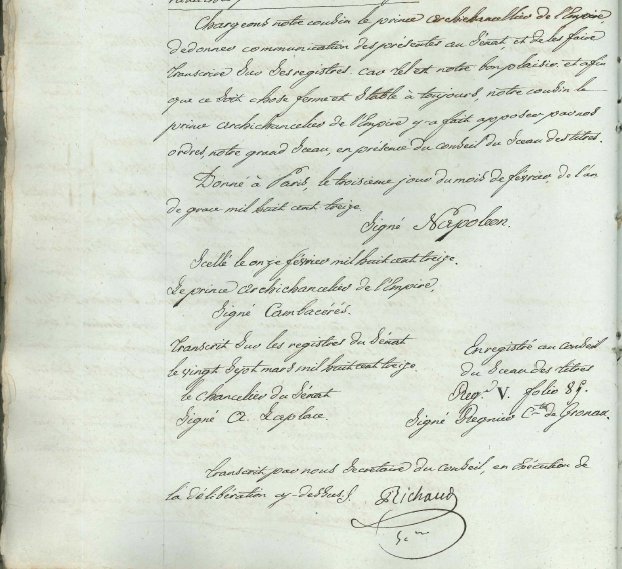 Chargeons notre cousin le prince archichancellier de l'Empire
de donner communication des présentes au Sénat et de les faire
transcrire sur ses registres. car tel est notre bon plaisir. et afin
que ce soit chose ferme et stable à toujours, notre cousin le
prince archichancelier de l'Empire y a fait apposer par nos
ordres, notre grand sceau, en présence du conseil du sceau des titres.
Donné à Paris, le troisieme jour du mois de février de l'an
de grace mil huit cent treize.
Signé Napoleon.
Scellé le onze février mil huit cent treize.
Le prince archichancelier de l'Empire,
Signé Cambacérés.
Transcrit sur les registres du Sénat
le vingt sept mars mil huit cent treize.
le chancelier du Sénat
Signé Laplace.
Enregistré au conseil
du Sceau des titres
Reg. V. folio 85.
Signé Regnier C.te de Gronau.
Transcrit par nous Secretaire du conseil, en exécution de
la délibération cy-dessus.
Richaud
S.re